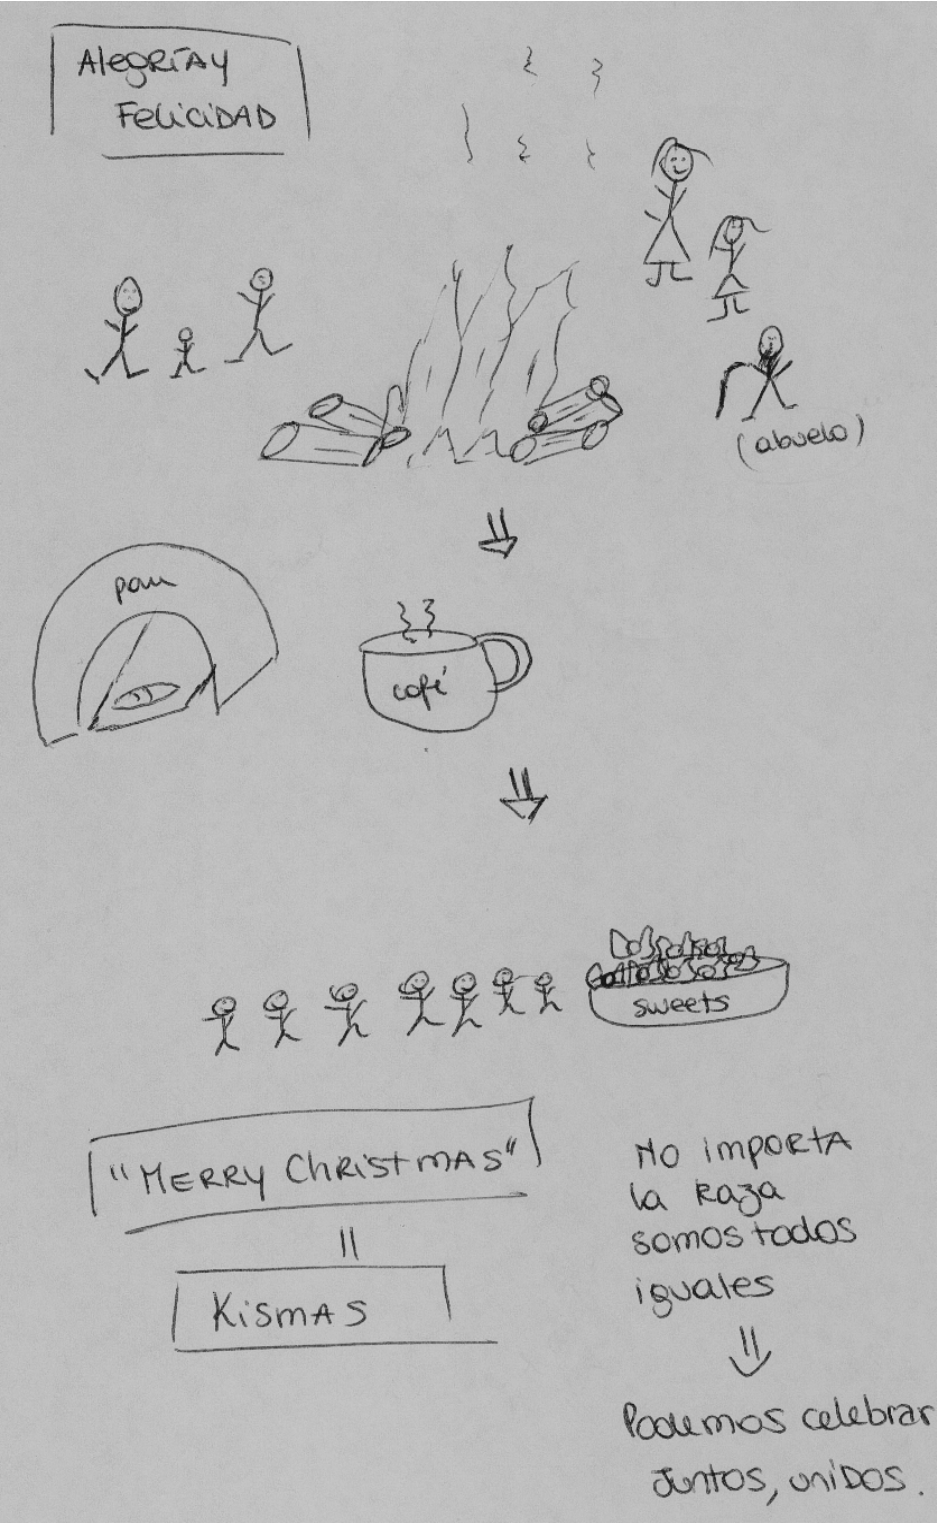 Alegría y
Felicidad
(abuelo)
pan
café
sweets
"Merry Christmas"
Kismas
No importa
la raza
somos todos
iguales
Podemos celebrar
juntos, unidos.